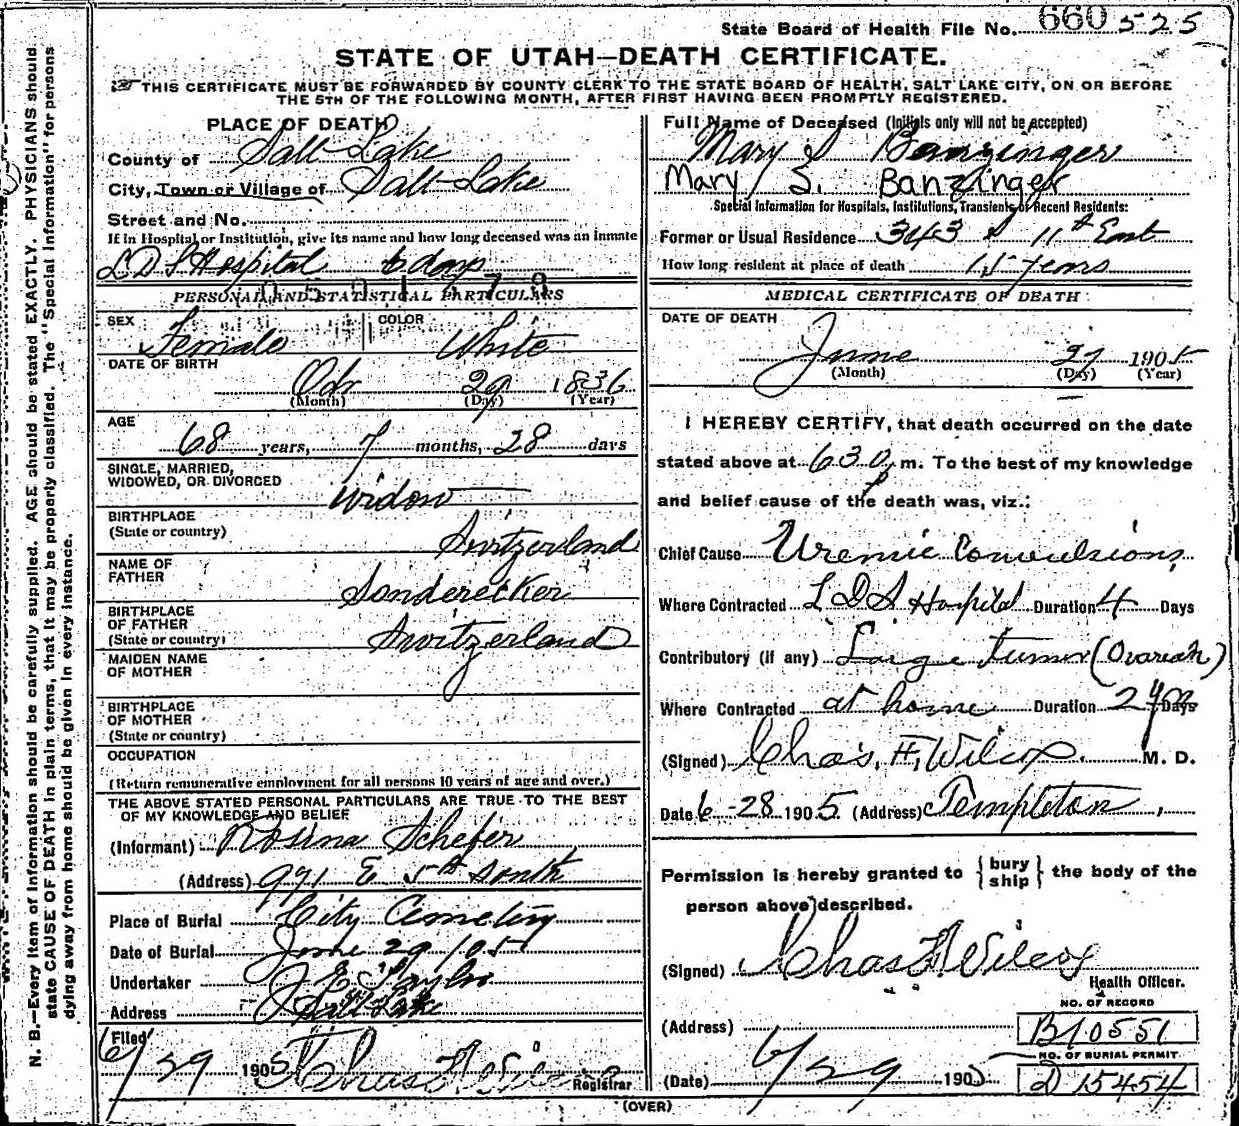 State Board of Health File No. 660 525
STATE OF UTAH—DEATH CERTIFICATE.
THIS CERTIFICATE MUST BE FORWARDED BY COUNTY CLERK TO THE STATE BOARD OF HEALTH, SALT LAKE CITY, ON OR BEFORE
THE 5TH OF THE FOLLOWING MONTH, AFTER FIRST HAVING BEEN PROMPTLY REGISTERED.
N. B.—Every item of information should be carefully supplied. AGE should be stated EXACTLY. PHYSICIANS should
state CAUSE OF DEATH in plain terms, that it may be properly classified. The "Special Information" for persons
dying away from home should be given in every instance.
PLACE OF DEATH
County of Salt Lake
City, Town or Village of Salt Lake
Street and No.
If in Hospital or Institution, give its name and how long deceased was an inmate
L D S Hospital 6 days
PERSONAL AND STATISTICAL PARTICULARS
SEX Female COLOR White
DATE OF BIRTH
29 1836
(Month) (Day) (Year)
AGE
68 years, 7 months, 28 days
SINGLE, MARRIED,
WIDOWED, OR DIVORCED widow
BIRTHPLACE
(State or country) Switzerland
NAME OF
FATHER Sonderecker
BIRTHPLACE
OF FATHER
(State or country) Switzerland
MAIDEN NAME
OF MOTHER
BIRTHPLACE
OF MOTHER
(State or country)
OCCUPATION
(Return remunerative employment for all persons 10 years of age and over.)
THE ABOVE STATED PERSONAL PARTICULARS ARE TRUE TO THE BEST
OF MY KNOWLEDGE AND BELIEF
(Informant) Rosina Schefer
(Address) 971 E 5th South
Place of Burial City Cemetery
Date of Burial June 29 / 05
Undertaker J E Taylor
Address Salt Lake
Filed
6/29 1905 Chas F Wilcox Registrar
Full Name of Deceased (Initials only will not be accepted)
Mary S Banzinger
Mary S. Banzinger
Special Information for Hospitals, Institutions, Transients or Recent Residents:
Former or Usual Residence 343 S 11th East
How long resident at place of death 15 years
MEDICAL CERTIFICATE OF DEATH
DATE OF DEATH
June 27 1905
(Month) (Day) (Year)
I HEREBY CERTIFY, that death occurred on the date
stated above at 630 p m. To the best of my knowledge
and belief cause of the death was, viz.:
Chief Cause Uremic Convulsions,
Where Contracted L D S Hospital Duration 4 Days
Contributory (if any) Large tumor (Ovarean)
Where Contracted at home Duration 2 yrs Days
(Signed) Chas. F. Wilcox. M. D.
Date 6-28 1905 (Address) Templeton,
Permission is hereby granted to { bury ship } the body of the
person above described.
(Signed) Chas F Wilcox
Health Officer.
(Address)
NO. OF RECORD
B10551
NO. OF BURIAL PERMIT
D 15454
(Date) 6/29 1905
(OVER)